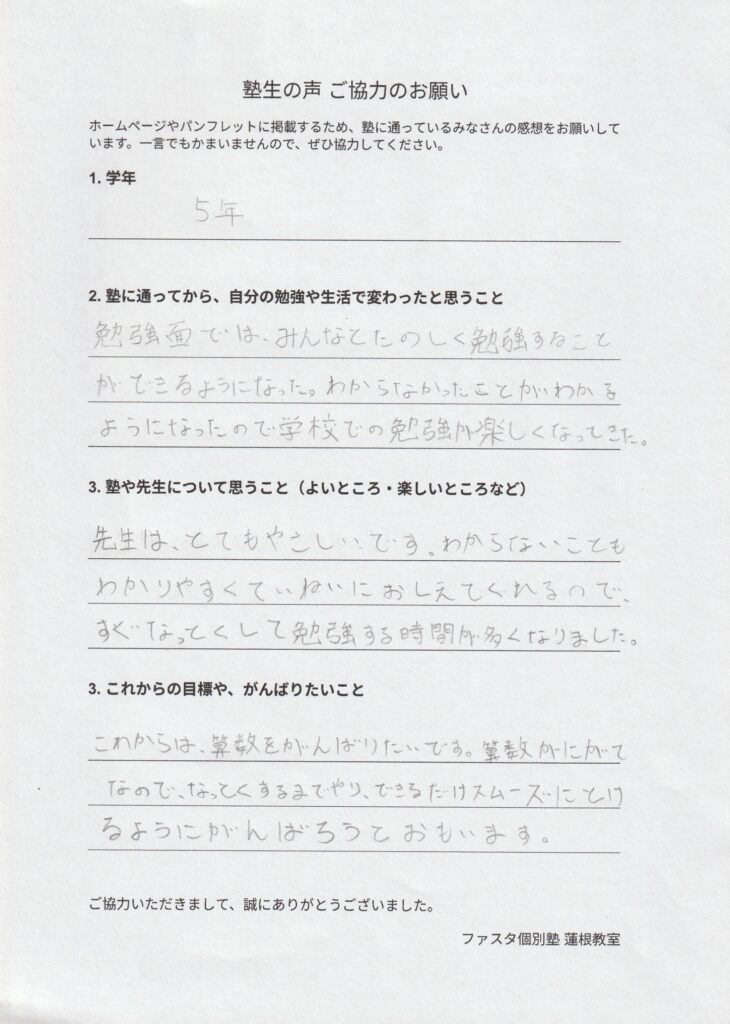 塾生の声 ご協力のお願い
ホームページやパンフレットに掲載するため、塾に通っているみなさんの感想をお願いして
います。一言でもかまいませんので、ぜひ協力してください。
1. 学年
5年
2. 塾に通ってから、自分の勉強や生活で変わったと思うこと
勉強面では、みんなとたのしく勉強すること
ができるようになった。わからなかったことがわかる
ようになったので学校での勉強が楽しくなってきた。
3. 塾や先生について思うこと（よいところ・楽しいところなど）
先生は、とてもやさしいです。わからないことも
わかりやすくていねいにおしえてくれるので、
すぐなっとくして勉強する時間が多くなりました。
3. これからの目標や、がんばりたいこと
これからは、算数をがんばりたいです。算数がにがて
なので、なっとくするまでやり、できるだけスムーズにとけ
るようにがんばろうとおもいます。
ご協力いただきまして、誠にありがとうございました。
ファスタ個別塾 蓮根教室